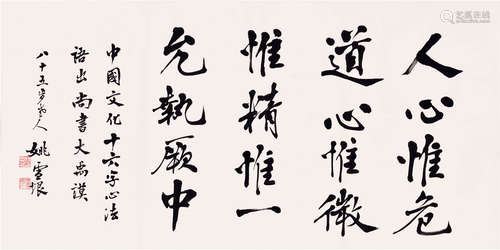 人心惟危
道心惟微
惟精惟一
允執厥中
中國文化十六字心法
語出尚書大禹謨
八十五岁老人
姚雪垠